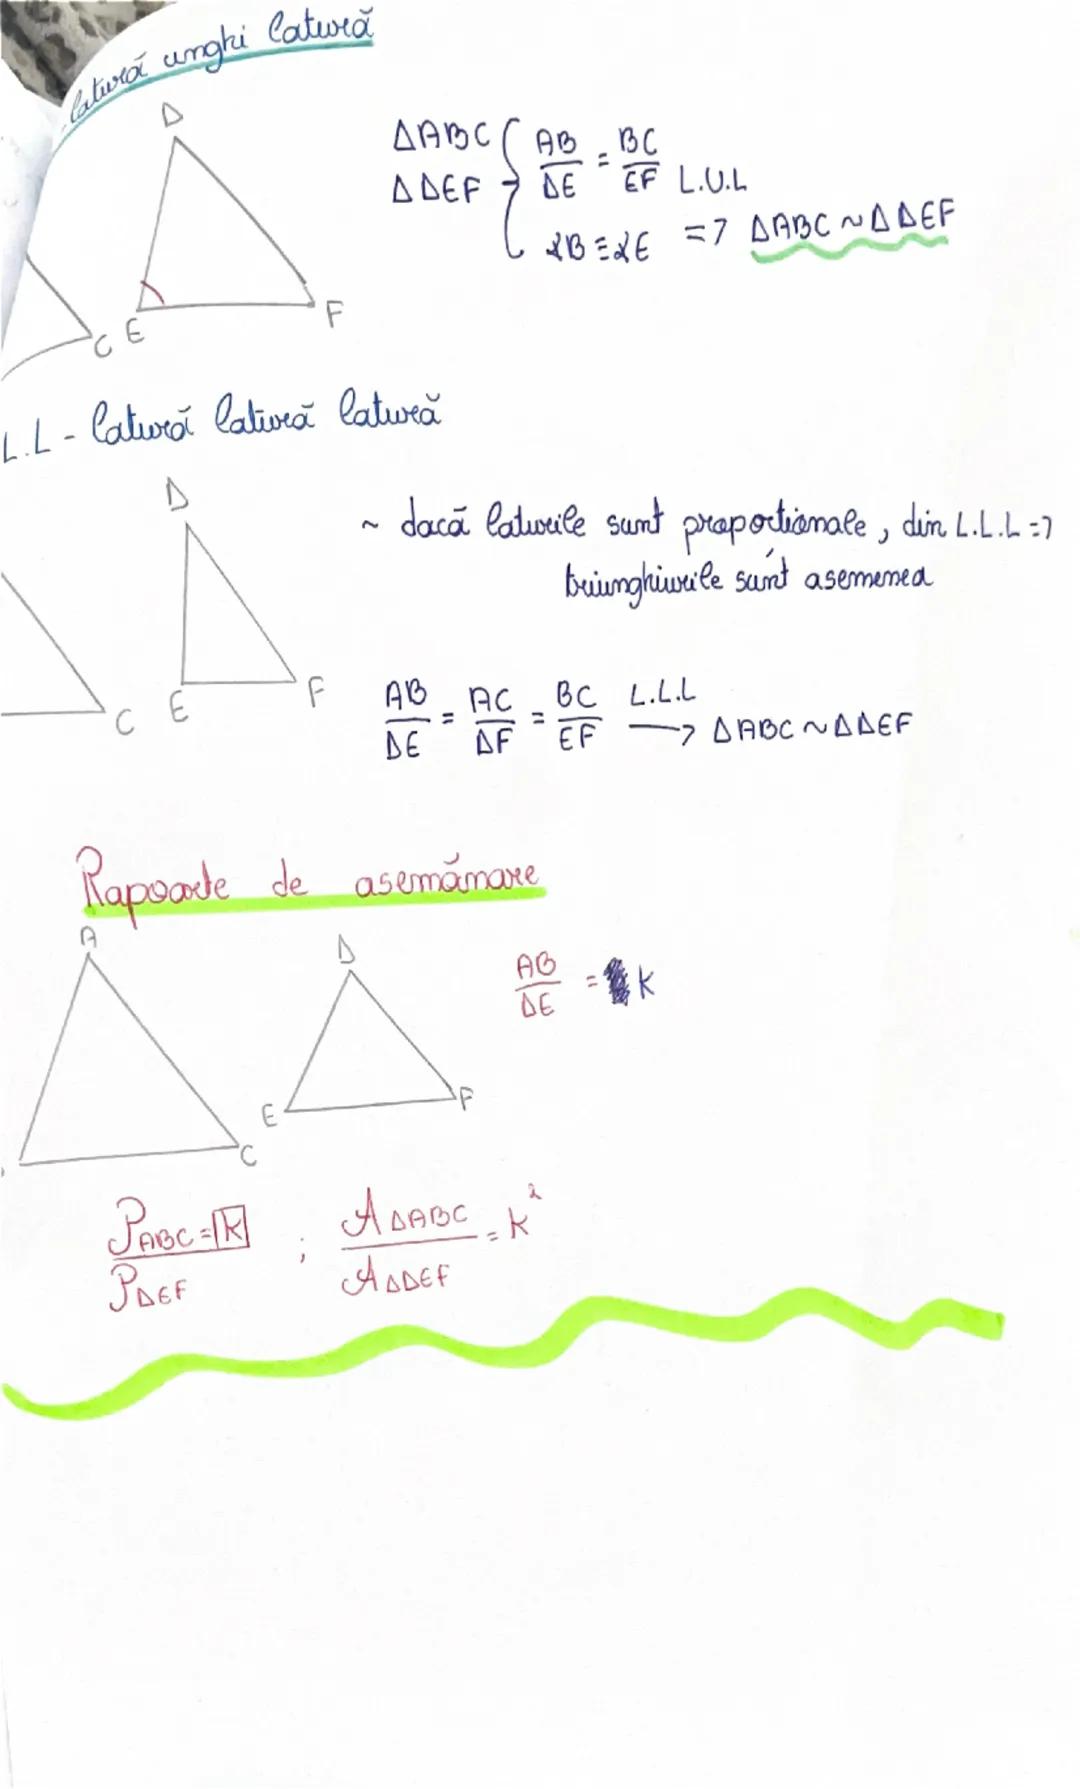 latură unghi latură
D
E
F
C
ΔABC { AB/DE = BC/EF L.U.L
ΔDEF
∢B≡∢E => ΔABC ~ ΔDEF
L.L - latură latură latură
D
E
F
C
~ dacă laturile sunt proporționale, din L.L.L =>
triunghiurile sunt asemenea
AB/DE = AC/DF = BC/EF L.L.L → ΔABC ~ ΔDEF
Rapoarte de asemănare
A
C
D
E
F
AB/DE = k
PABC/PDEF = k ; AΔABC/AΔDEF = k²